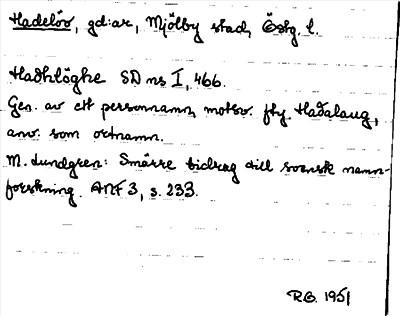 Hadelöv, gd:ar, Mjölby stad, Östg. l.
Hadhlöghe SD ns I, 466.
Gen. av ett personnamn, motsv. fht. Hadalaug,
anv. som ortnamn.
M. Lundgren: Smärre bidrag till svensk namn-
forskning. ANF 3, s. 233.
R.G. 1951